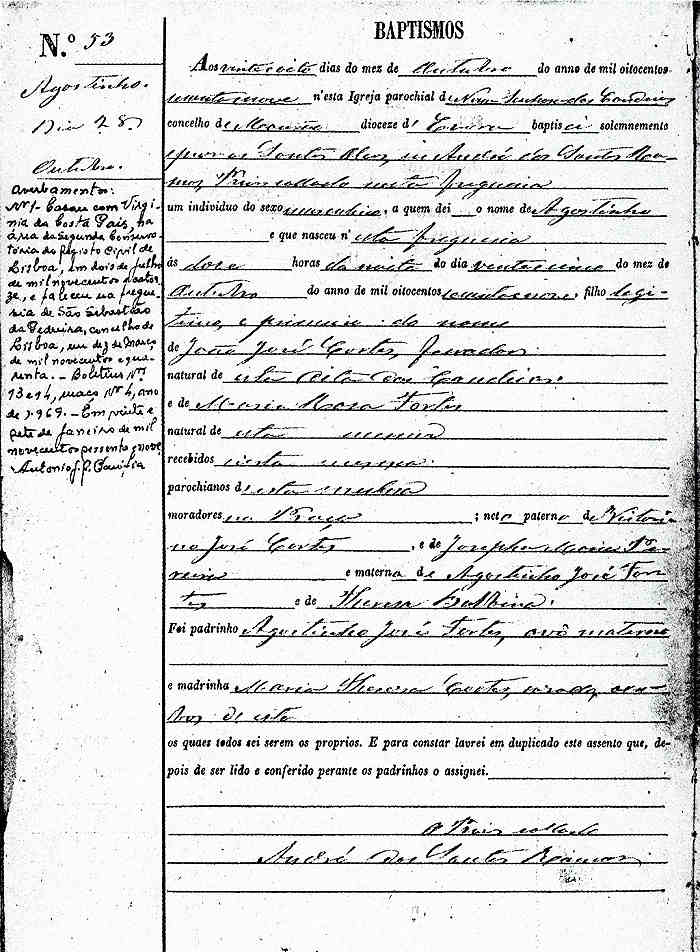 BAPTISMOS
N.º 53
Agostinho.
Dia 28.
Outubro.
Averbamentos:
Nº 1 - Casou com Virgi-
nia da Costa Pais, na
área da Segunda Conserva-
tória do Registo Civil de
Lisboa, em dois de julho
de mil novecentos e cator-
ze, e faleceu na fregue-
sia de São Sebastião
da Pedreira, concelho de
Lisboa, em dez de Março
de mil novecentos e qua-
renta. - Boletins Nºs
13 e 14, maço Nº 4, ano
de 1969. - Em vinte e
sete de Janeiro de mil
novecentos sessenta e nove
Antonio J. P.
Aos vinte oito dias do mez de Outubro do anno de mil oitocentos
e nove n'esta Igreja parochial de Nossa Senhora dos Candeias
concelho de dioceze d' baptisei solemnemente
Santos André dos Santos Ra-
mos, Prior collado nesta freguezia
um individuo do sexo masculino, a quem dei o nome de Agostinho
e que nasceu n' esta freguesia
ás doze horas da noite do dia vinte cinco do mez de
Outubro do anno de mil oitocentos e nove, filho legi-
timo, e primeiro do nome
de João José Cortes,
natural de esta dos Candeias:
e de Maria Rosa Fortes
natural de esta mesma
recebidos nesta mesma.
parochianos d esta mesma
moradores na Praça ; neto paterno de Victori-
no José Cortes, e de Josepha Maria Pe-
reira e materno de Agostinho José For-
tes e de Thereza Balbina.
Foi padrinho Agostinho José Fortes, avô materno
e madrinha Maria Thereza Cortes, am-
bos de esta
os quaes todos sei serem os proprios. E para constar lavrei em duplicado este assento que, de-
pois de ser lido e conferido perante os padrinhos o assignei.
O Prior collado
André dos Santos Ramos